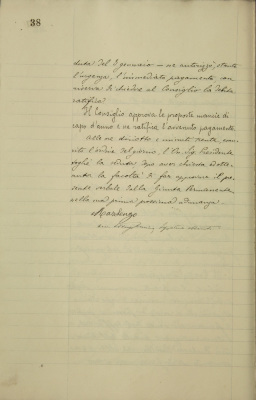 38
duta del 3 gennaio - ne autorizzò, stante
l'urgenza, l'immediato pagamento con
riserva di chiedere al Consiglio la debita
ratifica.
Il Consiglio, approva le proposte mancie di
capo d'anno e ne ratifica l'avvenuto pagamento.
Alle ore diciotto e minuti venti, esau-
rito l'ordine del giorno, l'Ill. Sig. Presidente
scioglie la seduta dopo aver chiesta ed otte-
nuta la facoltà di far approvare il pre-
sente verbale dalla Giunta Permanente
nella sua prima prossima adunanza.
Mardenzo